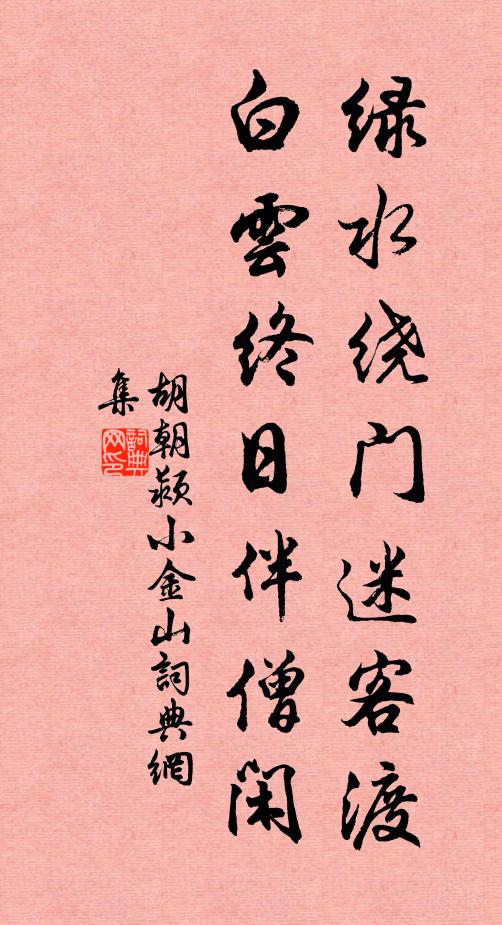 绿水绕门迷客渡
白雲终日伴僧闲
胡朝颖小金山詞典網
集
詞典网印